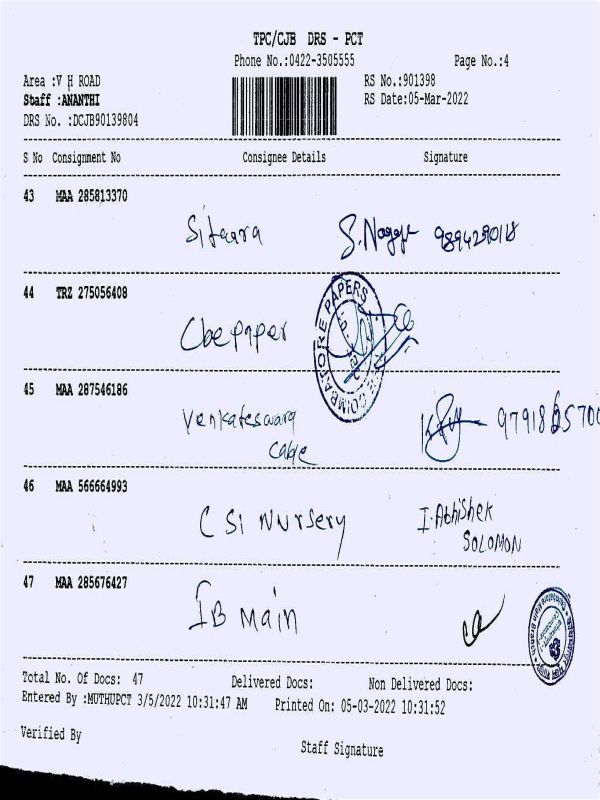 TPC/CJB DRS - PCT
Phone No.:0422-3505555 Page No.:4
Area :V H ROAD RS No.:901398
Staff :ANANTHI RS Date:05-Mar-2022
DRS No. :DCJB90139804
S No Consignment No Consignee Details Signature
43 MAA 285813370
Sitaara 9894290118
44 TRZ 275056408
COIMBATORE PAPERS
Cbe paper
45 MAA 287546186
Venkateswara
Cable
46 MAA 566664993
CSI Nursery I.Abhishek
SOLOMON
47 MAA 285676427
IB Main
Total No. Of Docs: 47 Delivered Docs: Non Delivered Docs:
Entered By :MUTHUPCT 3/5/2022 10:31:47 AM Printed On: 05-03-2022 10:31:52
Verified By Staff Signature